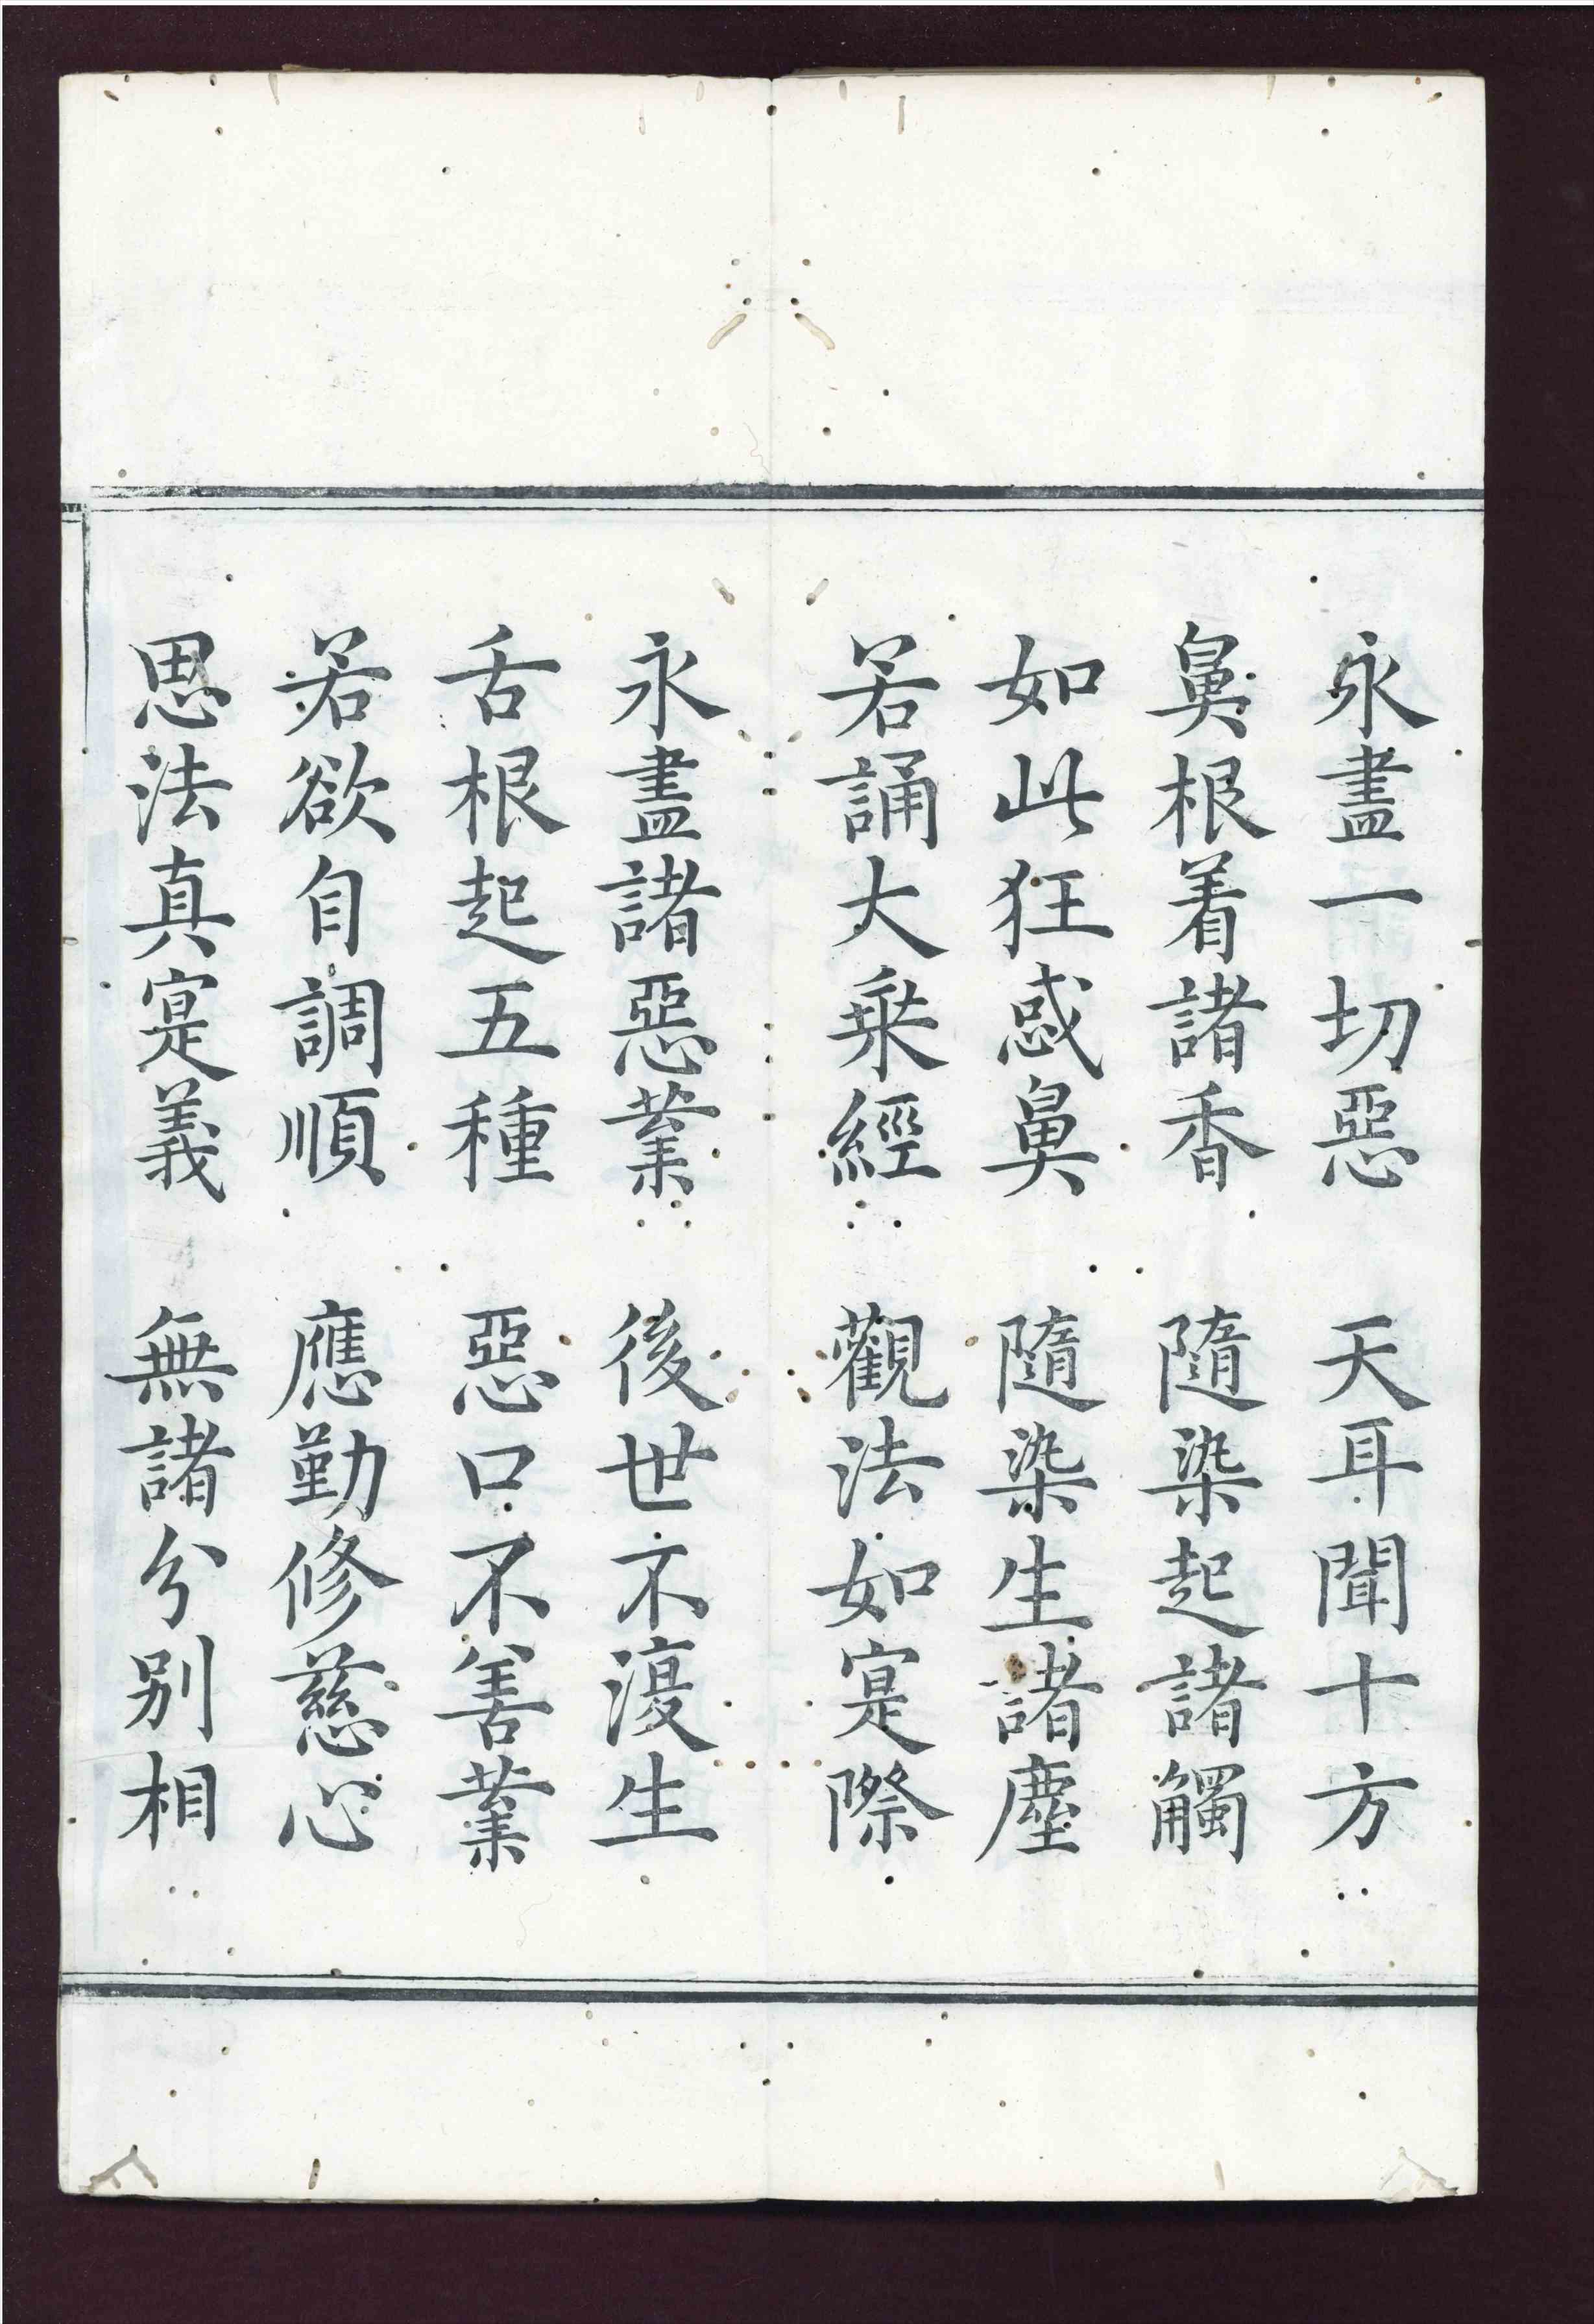 永盡一切惡　天耳聞十方
鼻根着諸香　隨染起諸觸
如此狂惑鼻　隨染生諸塵
若誦大乗經　觀法如寔際
永盡諸惡業　後世不復生
舌根起五種　惡口不善業
若欲自調順　應勤修慈心
思法真寔義　無諸分別相